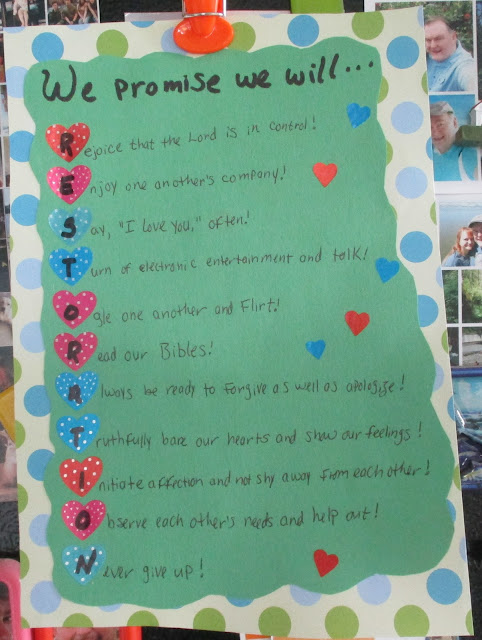 We promise we will...
Rejoice that the Lord is in control!
Enjoy one another's company!
Say, "I love you," often!
Turn of electronic entertainment and talk!
Ogle one another and Flirt!
Read our Bibles!
Always be ready to forgive as well as apologize!
Truthfully bare our hearts and show our feelings!
Initiate affection and not shy away from each other!
Observe each other's needs and help out!
Never give up!